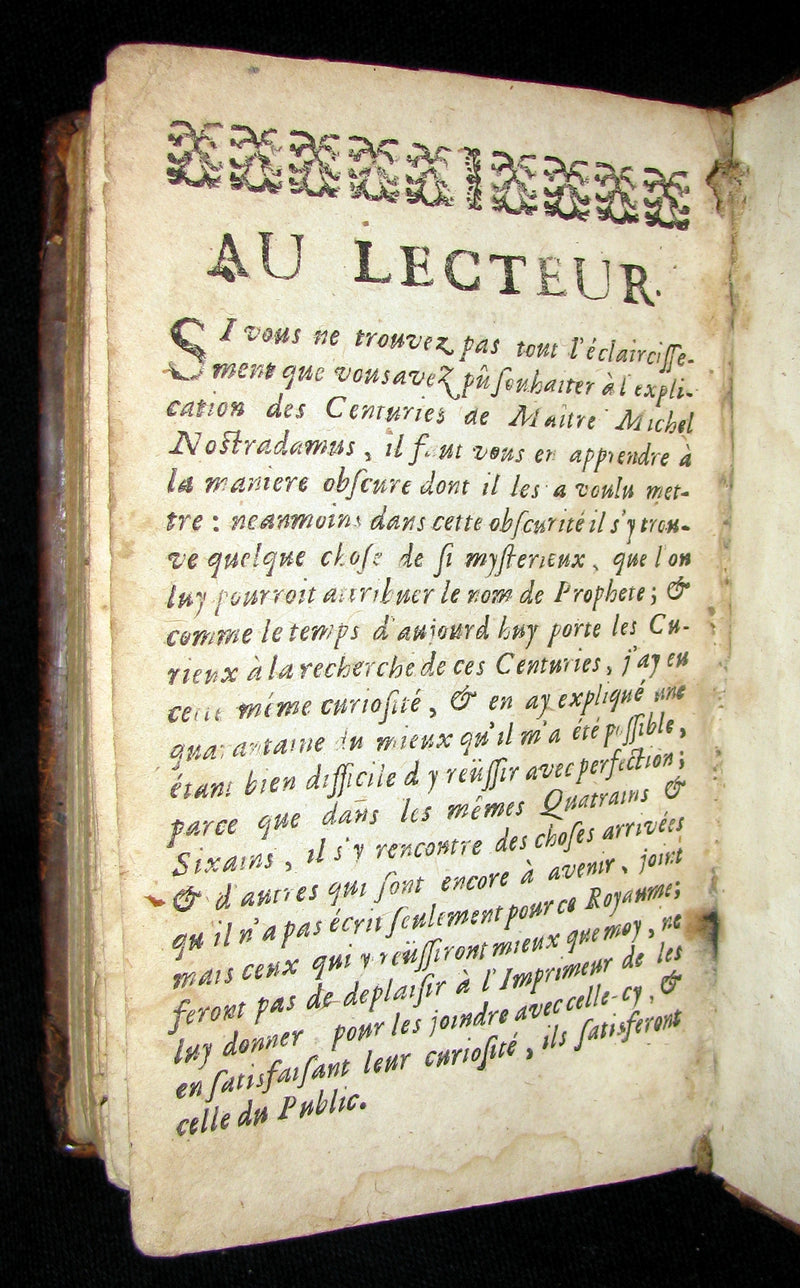 AU LECTEUR.
SI vous ne trouvez pas tout l'éclaircisse-
ment que vous avez pû souhaiter à l expli-
cation des Centuries de Maître Michel
Nostradamus, il faut vous en apprendre à
la maniere obscure dont il les a voulu met-
tre : neanmoins dans cette obscurité il s'y trou-
ve quelque chose de si mysterieux, que l'on
luy pourroit attribuer le nom de Prophete ; &
comme le temps d'aujourd huy porte les Cu-
rieux à la recherche de ces Centuries, j'ay eu
cette méme curiosité, & en ay expliqué une
quarantaine du mieux qu'il m'a été possible,
étant bien difficile d y reüssir avec perfection ;
parce que dans les mêmes Quatrains &
Sixains, il s'y rencontre des choses arrivées
& d'autres qui sont encore à avenir, joint
qu il n'a pas écrit seulement pour ce Royaume ;
mais ceux qui y reüssiront mieux que moy, ne
feront pas de deplaisir à l'Imprimeur de les
luy donner pour les joindre avec celle-cy, &
en satisfaisant leur curiosité, ils satisferont
celle du Public.